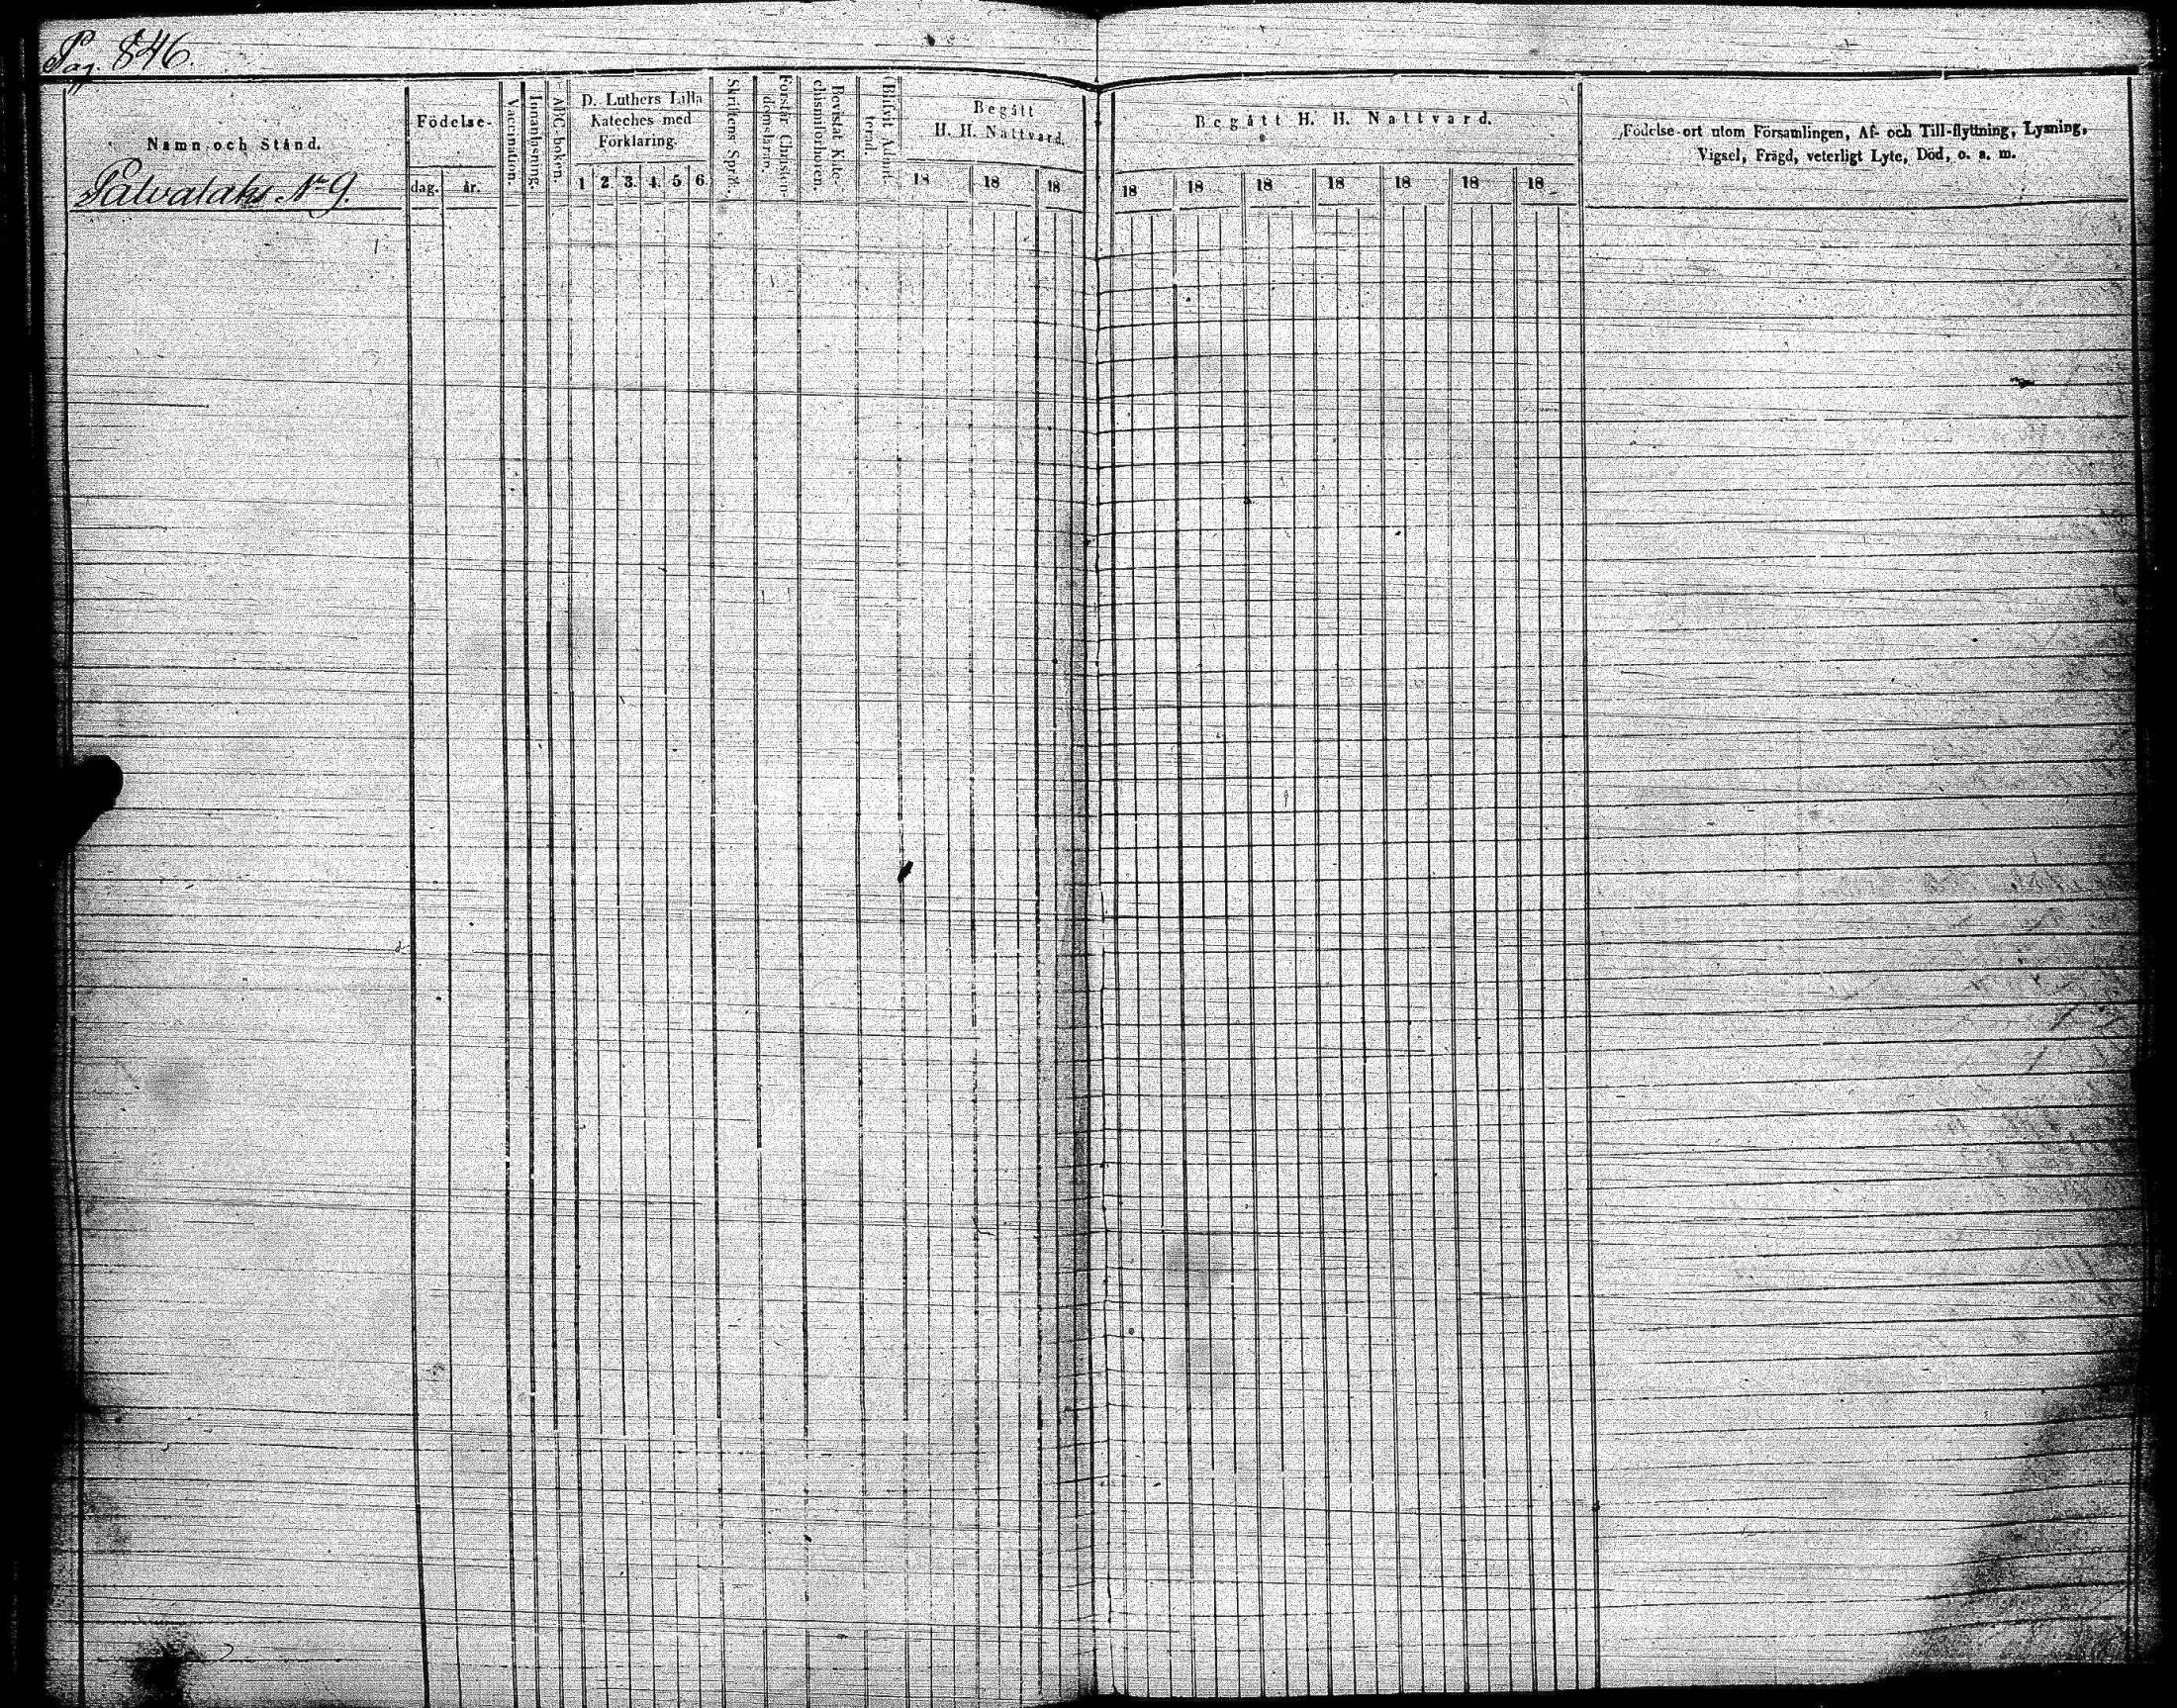 Pag. 846.
Namn och Stånd.
Palvalaks No 9.
Födelse-
dag. år.
Vaccination.
Innanläsning.
ABC-boken.
D. Luthers Lilla
Kateches med
Förklaring.
1 2. 3. 4. 5 6.
Skriftens Språk.
Förstår Christen-
domslären.
Bevistat Kate-
chismiförhören.
Blifvit Admit-
terad.
Begått
H. H. Nattvard.
18 18 18
Begått H. H. Nattvard.
18 18 18 18 18 18 18
Födelse-ort utom Församlingen, Af- och Till-flyttning, Lysning,
Vigsel, Frägd, veterligt Lyte, Död, o. s. m.